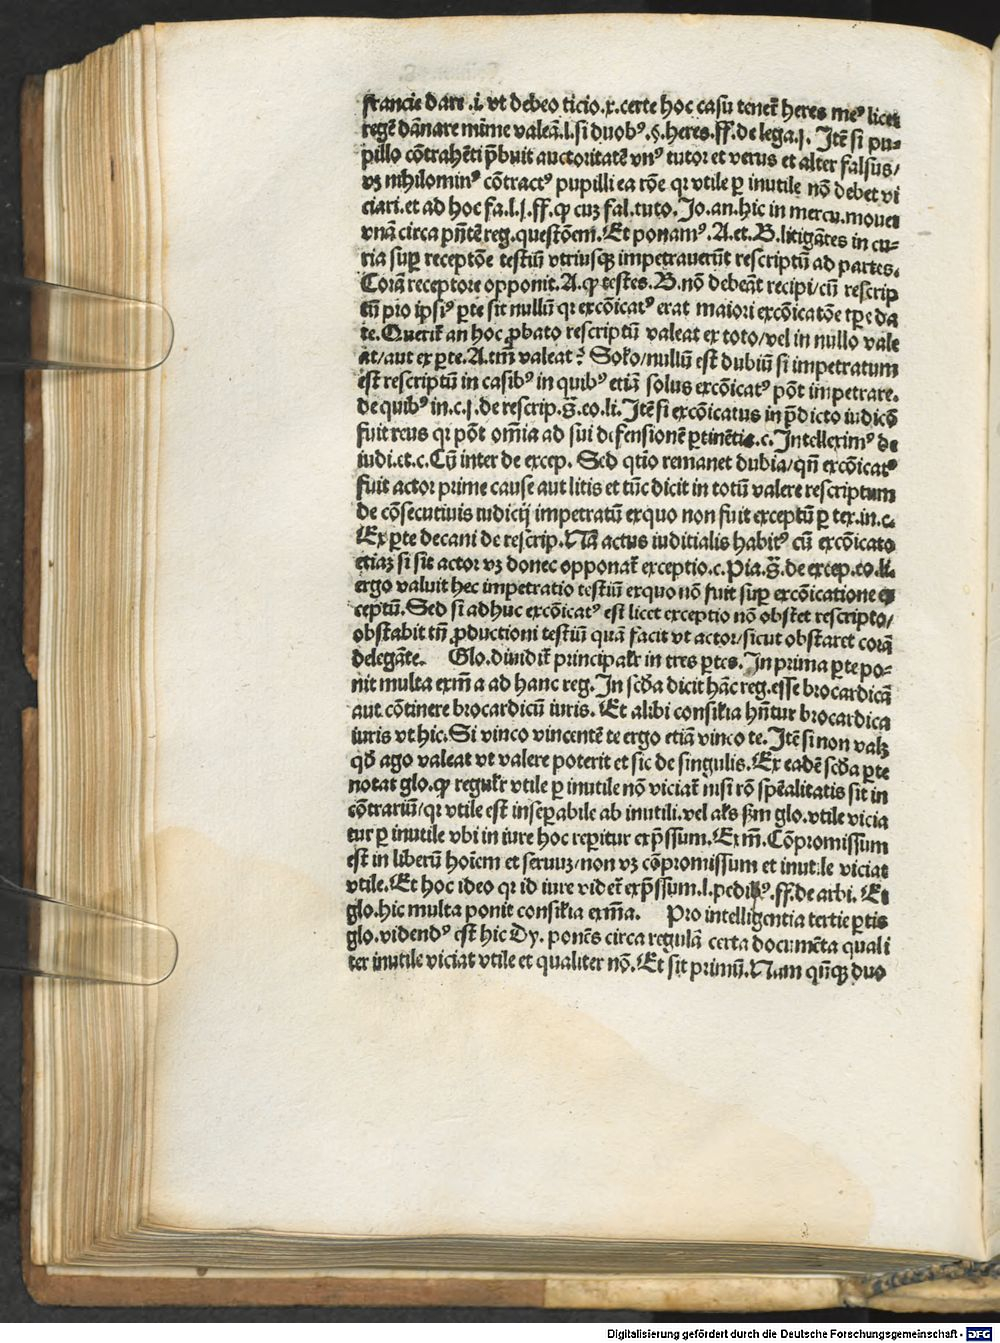 francie dare .i. vt debeo ticio.x.certe hoc casu tenet̃ heres me⁹ licet
regē dānare mīme valeā.l.si duob⁹.§.heres.ff.de lega.j. Itē si pu-
pillo cōtrahēti p̄buit auctoritatē vn⁹ tutor et verus et alter falsus/
vꝫ nihilomin⁹ cōtract⁹ pupilli ea rōe qꝛ vtile ꝑ inutile nō debet vi
ciari.et ad hoc fa.l.j.ff.ꝙ cuꝫ fal.tuto. Jo.an.hic in mercu.mouet
vnā circa pñtē reg.questōem.Et ponam⁹.A.et.B.litigātes in cu-
ria suꝑ receptōe testiū vtriusqꝫ impetrauerūt rescriptū ad partes.
Corā receptore opponit.A.ꝙ testes.B.nō debeāt recipi/cū rescrip
tū pro ipsi⁹ ꝑte sit nullū qꝛ excōicat⁹ erat maiori excōicatōe tꝑe da
te.Querit̃ an hoc ꝓbato rescriptū valeat ex toto/vel in nullo vale
at/aut ex ꝑte.A.tm̄ valeat? Solo/nullū est dubiū si impetratum
est rescriptū in casib⁹ in quib⁹ etiā solus excōicat⁹ pōt impetrare.
de quib⁹ in.c.j.de rescrip.§.eo.li. Itē si excōicatus in p̄dicto iudicō
fuit reus qꝛ pōt om̄ia ad sui defensionē ꝑtinētia.c.Intellexim⁹ de
iudi.et.c.Cū inter de excep. Sed qtīo remanet dubia/qñ excōicat⁹
fuit actor prime cause aut litis et tūc dicit in totū valere rescriptum
de cōsecutiuis iudicij impetratū exquo non fuit exceptū ꝑ tex.in.c.
Ex ꝑte decani de rescrip.Nā actus iuditialis habit⁹ cū excōicato
etiaꝫ si sit actor vꝫ donec opponat̃ exceptio.c.Pia.§.de excep.eo.li.
ergo valuit hec impetratio testiū exquo nō fuit suꝑ excōicatione ex
ceptū.Sed si adhuc excōicat⁹ est licet exceptio nō obstet rescripto/
obstabit tñ ꝓductioni testiū quā facit vt actor/sicut obstaret corā
delegāte. Glo.diuidit̃ principalr̄ in tres ꝑtes.In prima ꝑte po-
nit multa exm̄a ad hanc reg.In scḋa dicit hāc reg.esse brocardicā
aut cōtinere brocardicū iuris. Et alibi consilia hñtur brocardica
iuris vt hic.Si vinco vincentē te ergo etiā vinco te.Itē si non valꝫ
qḋ ago valeat vt valere poterit et sic de singulis.Ex eadē scḋa ꝑte
notat glo.ꝙ regulr̄ vtile ꝑ inutile nō viciat̃ nisi rō spēalitatis sit in
cōtrariū/qꝛ vtile est inseꝑabile ab inutili.vel als̄ ßm glo.vtile vicia
tur ꝑ inutile vbi in iure hoc reꝑitur exp̄ssum.Exm̄.Cōpromissum
est in liberū hoīem et seruuꝫ/non vꝫ cōpromissum et inutile viciat
vtile.Et hoc ideo qꝛ id iure videt̃ exp̄ssum.l.pedi⁹.ff.de arbi. Et
glo.hic multa ponit consilia exm̄a. Pro intelligentia tertie ꝑtis
glo.vidend⁹ est hic Dy. ponēs circa regulā certa documēta quali
ter inutile viciat vtile et qualiter nō.Et sit primū.Nam qñqꝫ duo
Digitalisierung gefördert durch die Deutsche Forschungsgemeinschaft - DFG